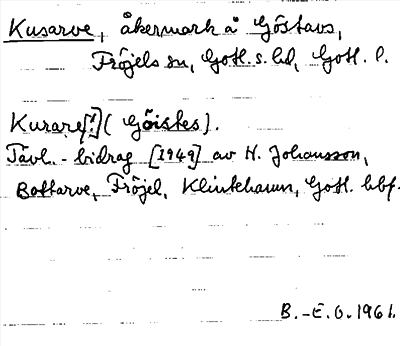 Kusarve, åkermark å Göstavs,
Fröjels sn, Gotl. s. hd, Gotl. l.
Kurare[!] (Göistes).
Tävl.-bidrag [1949] av H. Johansson,
Bottarve, Fröjel, Klintehamn, Gotl. hbf.
B.-E. O. 1961.